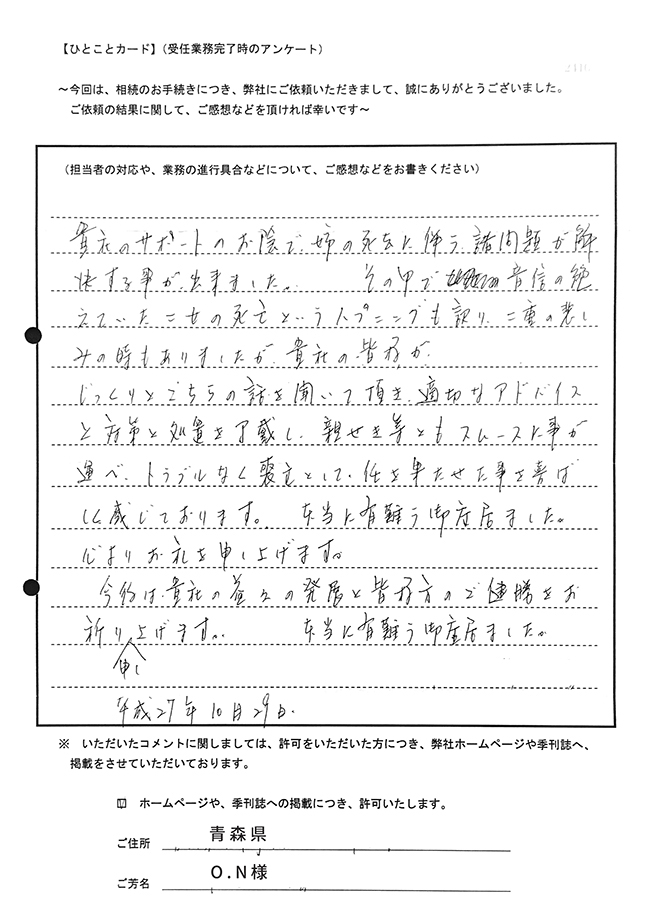 【ひとことカード】（受任業務完了時のアンケート）
2116
～今回は、相続のお手続きにつき、弊社にご依頼いただきまして、誠にありがとうございました。
ご依頼の結果に関して、ご感想などを頂ければ幸いです～
（担当者の対応や、業務の進行具合などについて、ご感想などをお書きください）
貴社のサポートのお陰で、姉の死去に伴う諸問題が解
決する事が出来ました。 その中で 音信の絶
えていた二女の死亡というハプニングも 二重の悲し
みの時もありましたが、貴社の皆様が、
じっくりとこちらの話を聞いて頂き、適切なアドバイス
と対策と処置を了戴し、親せき等ともスムースに事が
運べ、トラブルなく喪主として、任を果たせた事を喜ば
しく感じております。 本当に有難う御座居ました。
心よりお礼を申し上げます。
今后は、貴社の益々の発展と皆様方のご健勝をお
祈り申し上げます。 本当に有難う御座居ました。
平成27年10月29日.
※ いただいたコメントに関しましては、許可をいただいた方につき、弊社ホームページや季刊誌へ、
掲載をさせていただいております。
ホームページや、季刊誌への掲載につき、許可いたします。
ご住所 青森県
ご芳名 O.N様